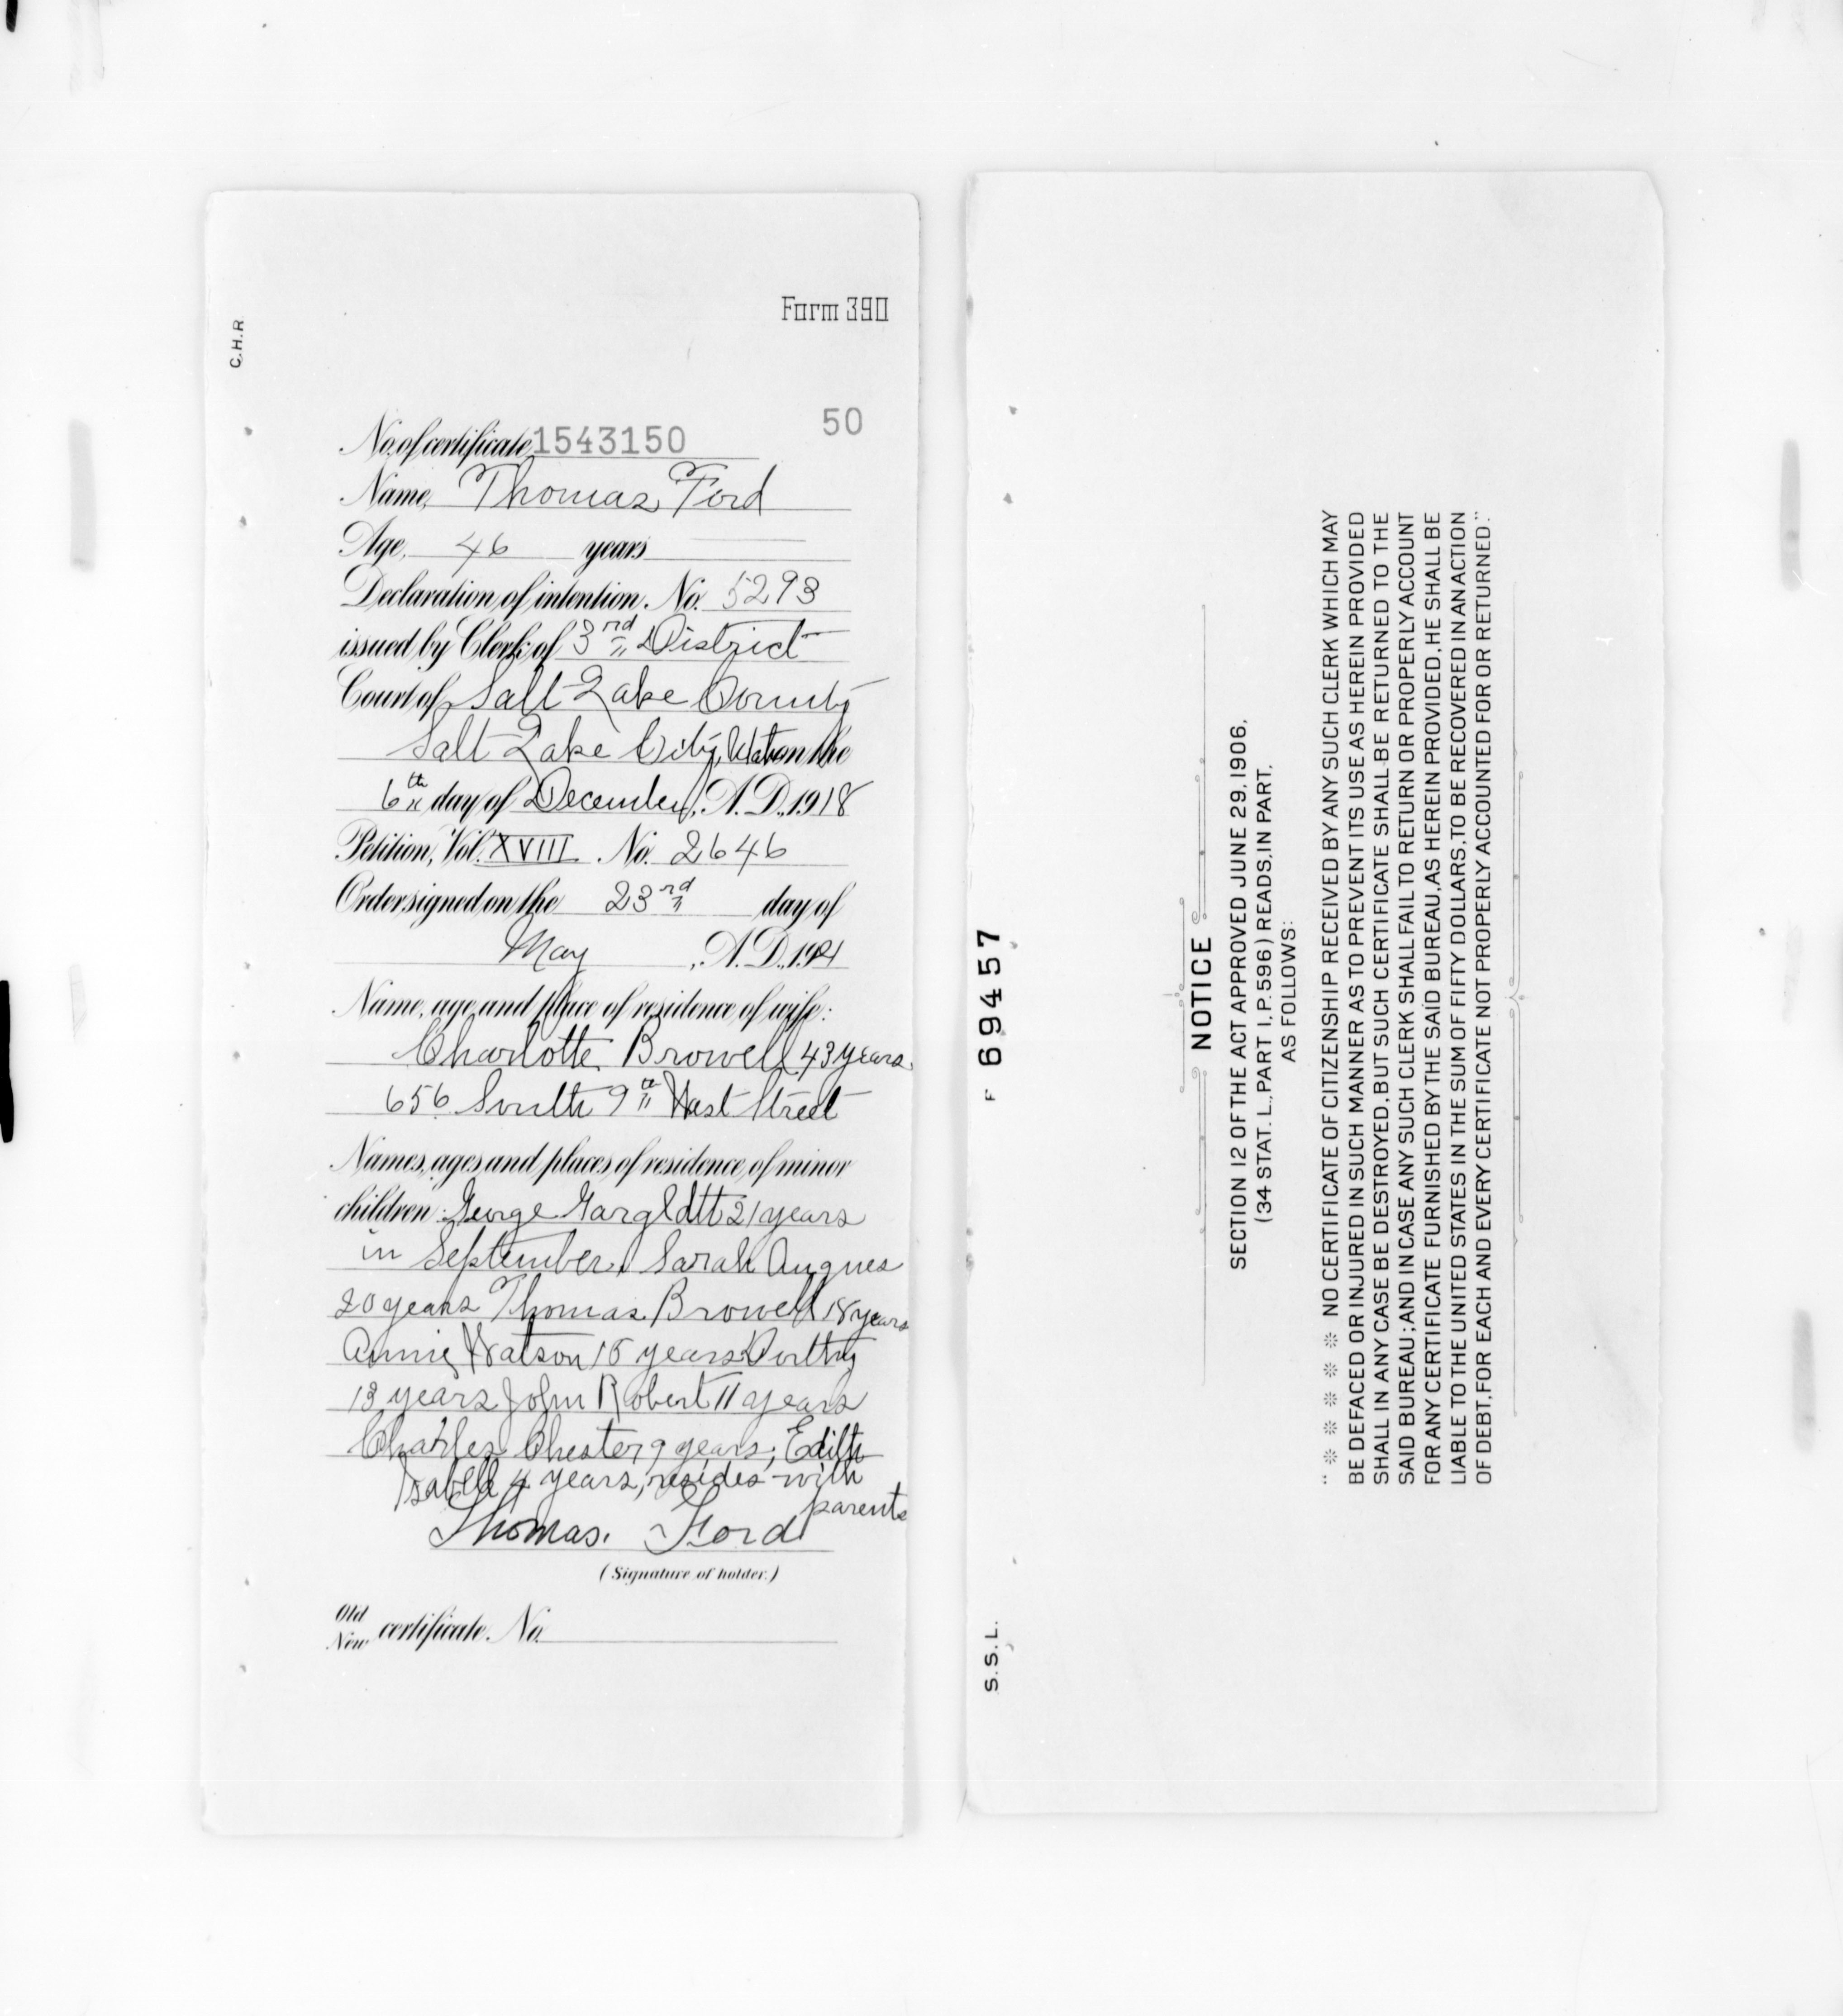 Form 390
C.H.R
50
No. of certificate, 1543150
Name, Thomas Ford
Age, 46 years
Declaration of intention, No. 5293
issued by Clerk of 3rd District
Court of Salt Lake County
Salt Lake City, Utah on the
6th day of December, A.D., 1918
Petition, Vol. XVIII No. 2646
Order signed on the 23rd day of
May, A.D., 1921
Name, age and place of residence of wife:
Charlotte Browell 43 years
656 South 9th West Street
Names, ages and places of residence of minor
children: George 21 years
in September, Sarah
20 years Thomas Browell 18 years
Annie Watson years Dorthy
13 years John Robert 11 years
Charles Chester 9 years; Edith
Isabell 4 years; resides with
parents
Thomas. Ford
(Signature of holder.)
Old
New certificate. No.
F 69457
S.S.L.
NOTICE
SECTION 12 OF THE ACT APPROVED JUNE 29, 1906,
(34 STAT. L., PART I, P. 596) READS, IN PART,
AS FOLLOWS:
" ※ ※ ※ ※ ※ ※ NO CERTIFICATE OF CITIZENSHIP RECEIVED BY ANY SUCH CLERK WHICH MAY
BE DEFACED OR INJURED IN SUCH MANNER AS TO PREVENT ITS USE AS HEREIN PROVIDED
SHALL IN ANY CASE BE DESTROYED, BUT SUCH CERTIFICATE SHALL BE RETURNED TO THE
SAID BUREAU; AND IN CASE ANY SUCH CLERK SHALL FAIL TO RETURN OR PROPERLY ACCOUNT
FOR ANY CERTIFICATE FURNISHED BY THE SAID BUREAU, AS HEREIN PROVIDED, HE SHALL BE
LIABLE TO THE UNITED STATES IN THE SUM OF FIFTY DOLLARS, TO BE RECOVERED IN AN ACTION
OF DEBT, FOR EACH AND EVERY CERTIFICATE NOT PROPERLY ACCOUNTED FOR OR RETURNED."